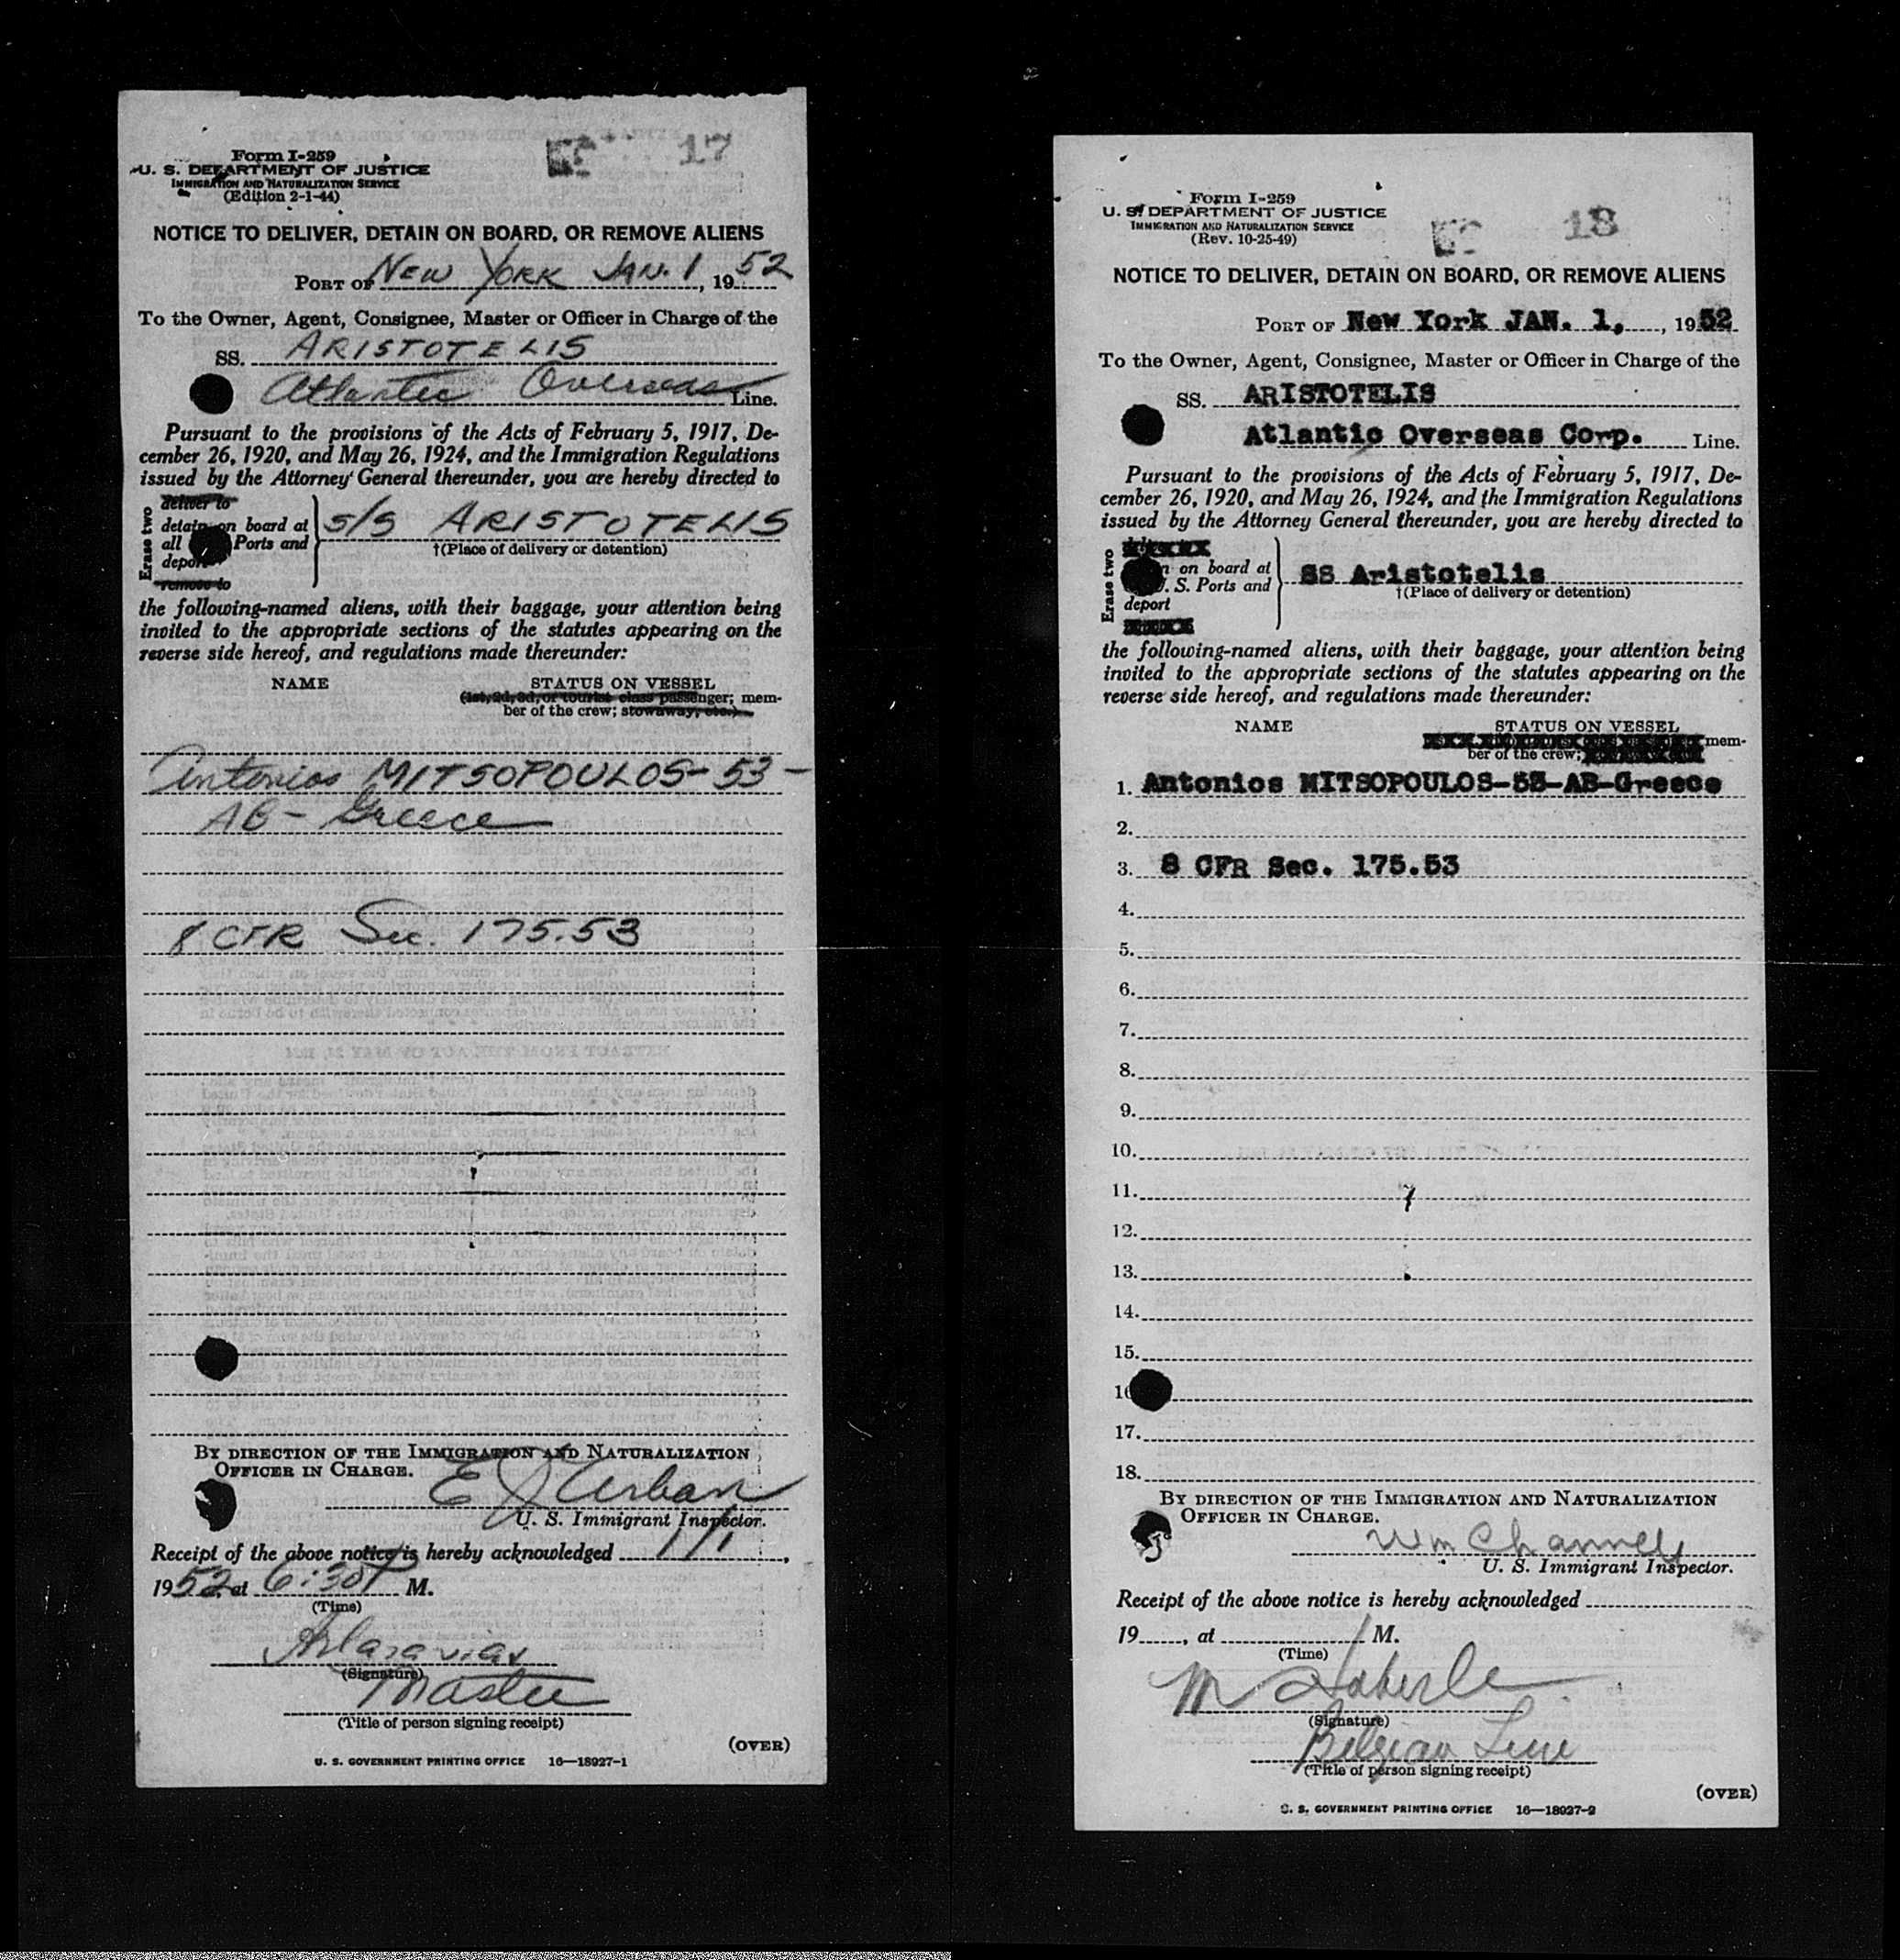 17
Form I-259
U. S. DEPARTMENT OF JUSTICE
IMMIGRATION AND NATURALIZATION SERVICE
(Edition 2-1-44)
NOTICE TO DELIVER, DETAIN ON BOARD, OR REMOVE ALIENS
PORT OF NEW YORK JAN. 1, 1952
To the Owner, Agent, Consignee, Master or Officer in Charge of the
SS. ARISTOTELIS
Atlantic Overseas Line.
Pursuant to the provisions of the Acts of February 5, 1917, De-
cember 26, 1920, and May 26, 1924, and the Immigration Regulations
issued by the Attorney General thereunder, you are hereby directed to
Erase two
deliver to
detain on board at
all Ports and
deport
remove to
S/S ARISTOTELIS
†(Place of delivery or detention)
the following-named aliens, with their baggage, your attention being
invited to the appropriate sections of the statutes appearing on the
reverse side hereof, and regulations made thereunder:
NAME STATUS ON VESSEL
(1st, 2d, 3d, or tourist class passenger; mem-
ber of the crew; stowaway, etc.)
Antonios MITSOPOULOS-53-
AB-Greece
8 CFR Sec. 175.53
BY DIRECTION OF THE IMMIGRATION AND NATURALIZATION
OFFICER IN CHARGE.
E J Urban
U. S. Immigrant Inspector.
Receipt of the above notice is hereby acknowledged 1/1,
1952, at 6:30 P M.
(Time)
(Signature)
Master
(Title of person signing receipt)
(OVER)
U. S. GOVERNMENT PRINTING OFFICE 16—18927-1
18
Form I-259
U. S. DEPARTMENT OF JUSTICE
IMMIGRATION AND NATURALIZATION SERVICE
(Rev. 10-25-49)
NOTICE TO DELIVER, DETAIN ON BOARD, OR REMOVE ALIENS
PORT OF New York JAN. 1, , 1952
To the Owner, Agent, Consignee, Master or Officer in Charge of the
SS. ARISTOTELIS
Atlantic Overseas Corp. Line.
Pursuant to the provisions of the Acts of February 5, 1917, De-
cember 26, 1920, and May 26, 1924, and the Immigration Regulations
issued by the Attorney General thereunder, you are hereby directed to
Erase two
n on board at
. S. Ports and
deport
SS Aristotelis
†(Place of delivery or detention)
the following-named aliens, with their baggage, your attention being
invited to the appropriate sections of the statutes appearing on the
reverse side hereof, and regulations made thereunder:
NAME STATUS ON VESSEL
mem-
ber of the crew;
1. Antonios MITSOPOULOS-53-AB-Greece
2.
3. 8 CFR Sec. 175.53
4.
5.
6.
7.
8.
9.
10.
11.
12.
13.
14.
15.
16
17.
18.
BY DIRECTION OF THE IMMIGRATION AND NATURALIZATION
OFFICER IN CHARGE.
Wm Channels
U. S. Immigrant Inspector.
Receipt of the above notice is hereby acknowledged
19 , at M.
(Time)
M Haberle
(Signature)
Belgian Line
(Title of person signing receipt)
(OVER)
U. S. GOVERNMENT PRINTING OFFICE 16—18927-2